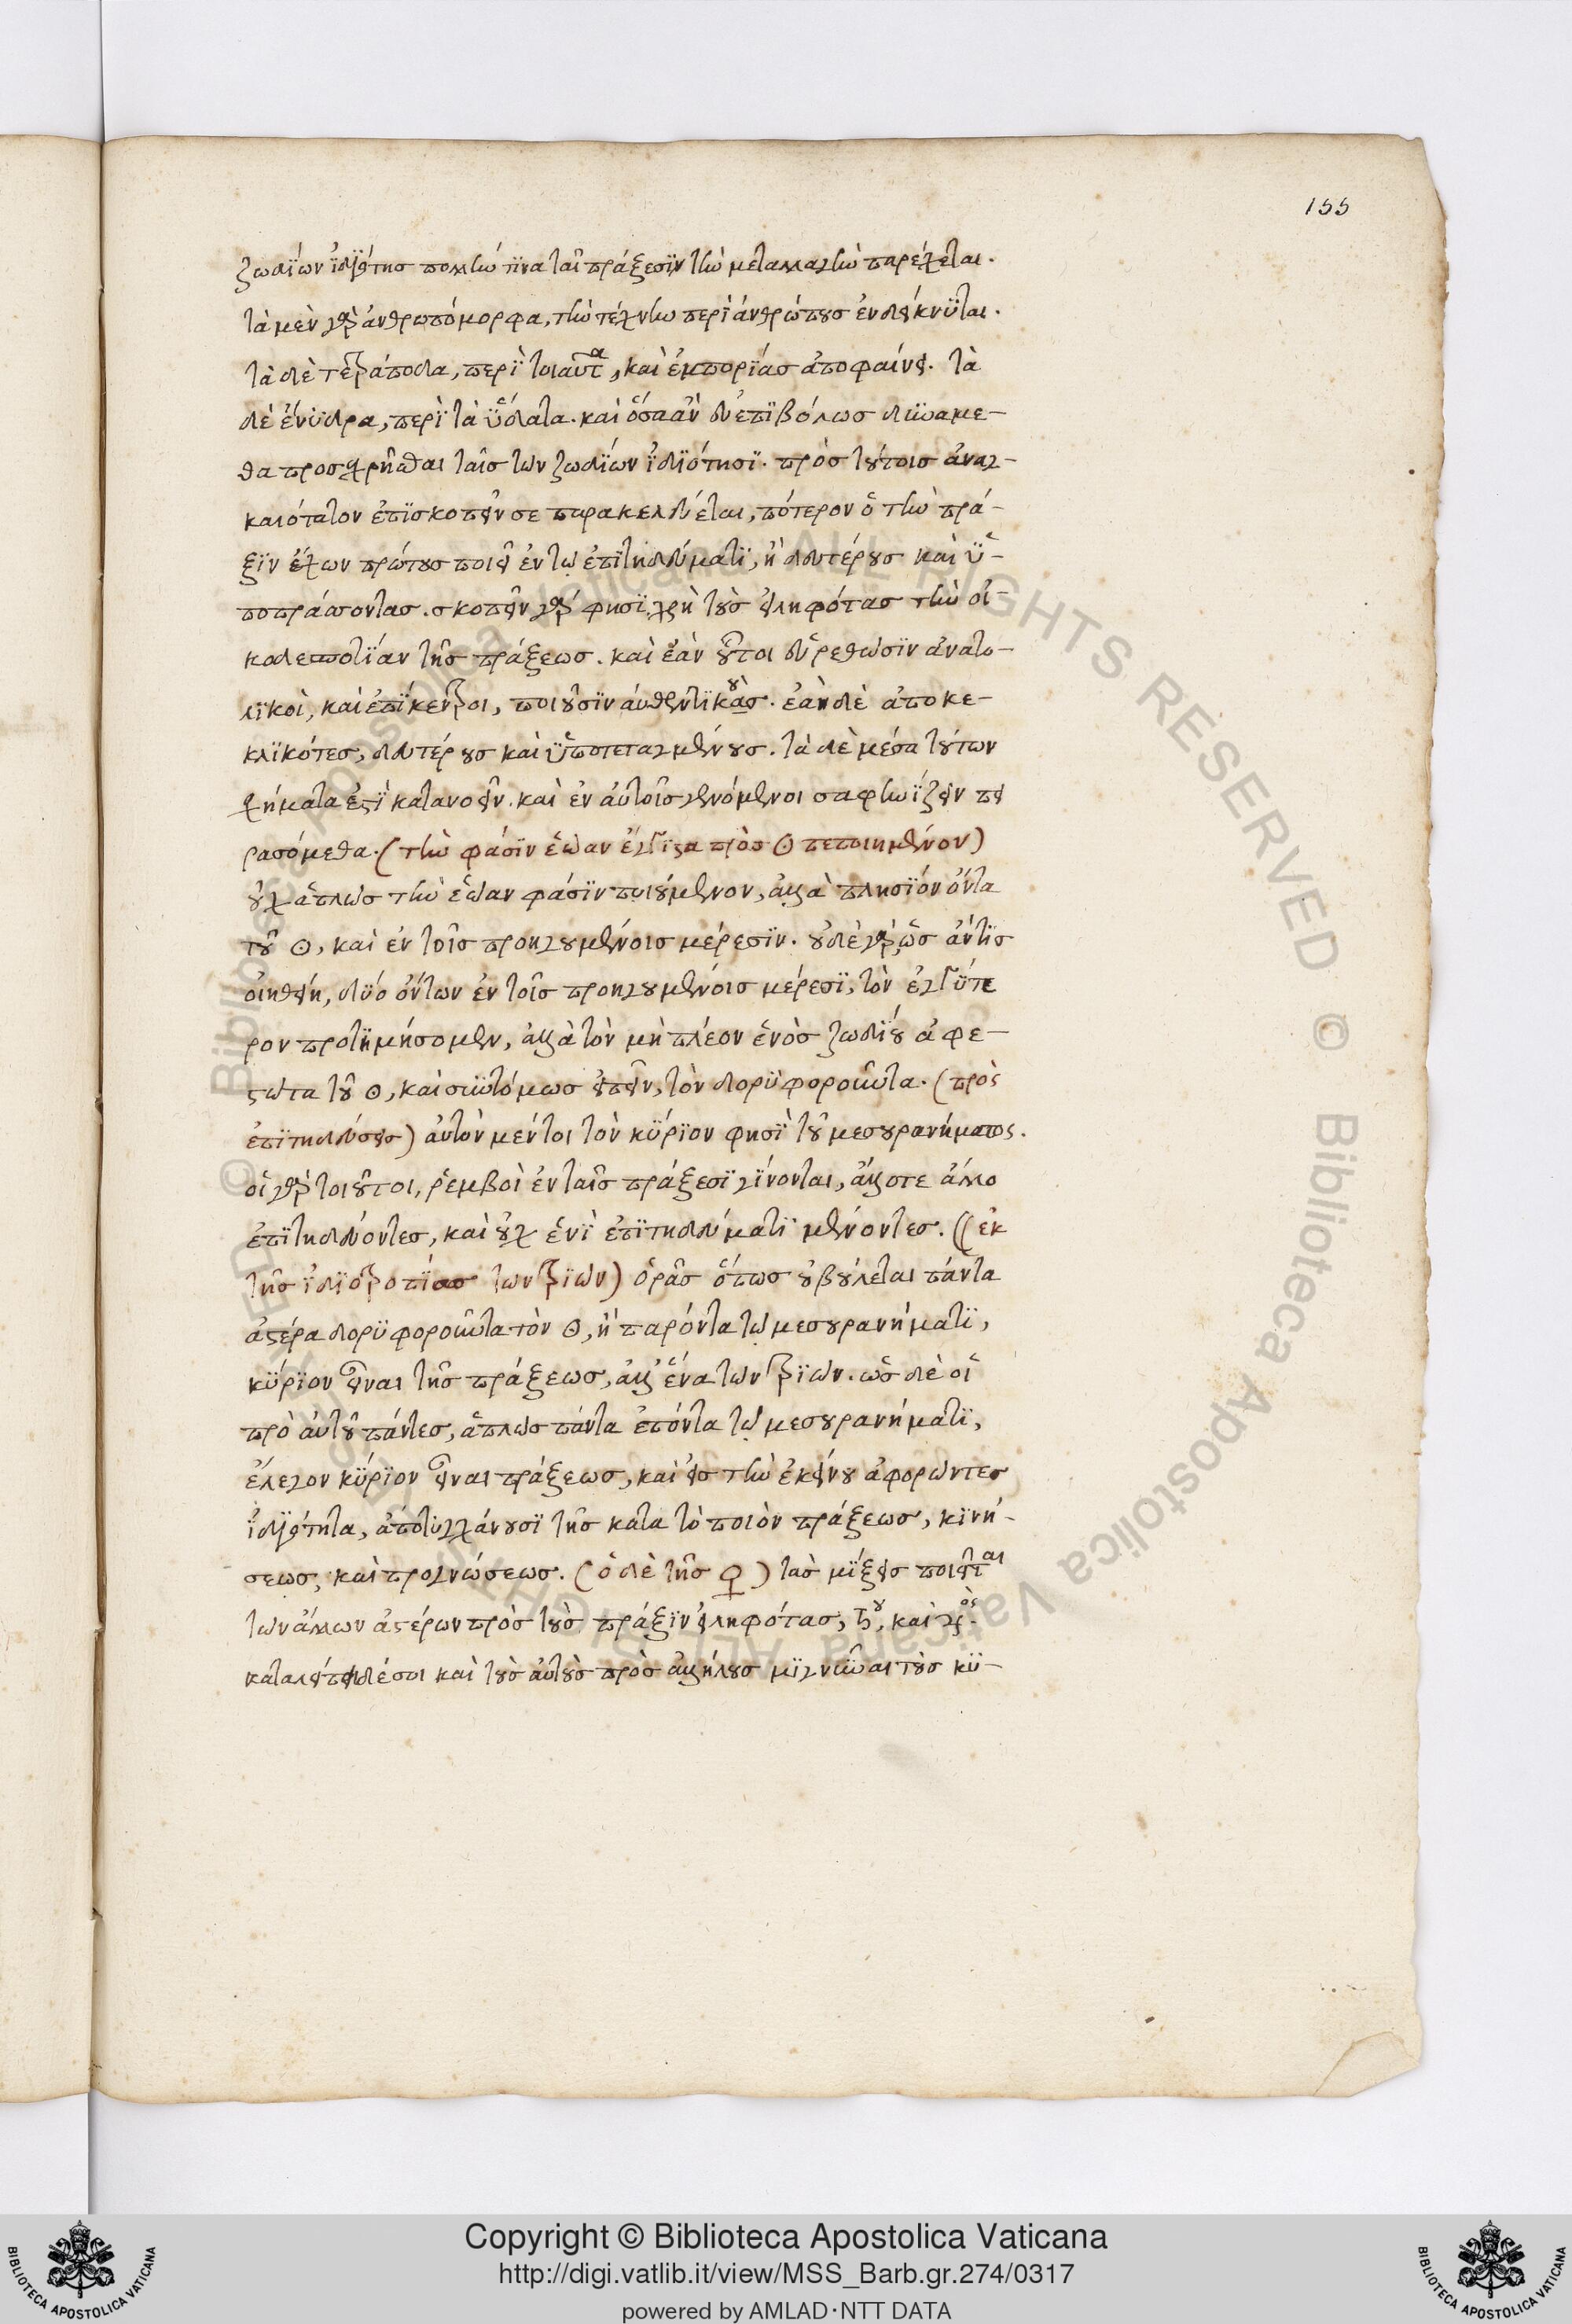 155
ζωδίων ἰδιότης πολλήν τινα ταῖ πράξεσϊν τὴν μεταλλαγὴν παρέχεται.
τὰ μὲν γὰρ ἀνθρωπόμορφα, τὴν τέχνην περὶ ἀνθρώπους ἐνδείκνϋται.
τὰ δὲ τετράποδα, περὶ τοιαῦτα, καὶ ἐμπορίας ἀποφαίνει. τὰ
δὲ ἔνυδρα, περὶ τὰ ὕδατα. καὶ ὅσα ἂν εὐεπιβόλως δυνάμε-
θα προσχρῆσθαι ταῖς τῶν ζωδίων ἰδιότησϊ. πρὸς τούτοις ἀναγ-
καιότατον ἐπισκοπεῖν σε παρακελεύεται, πότερον ὁ τὴν πρά-
ξϊν ἔχων πρώτους ποιεῖ ἐν τῷ ἐπιτηδεύματι, ἢ δευτέρους καὶ ὑ-
ποπράσσοντας. σκοπεῖν γάρ φησϊ χρὴ τοὺς εἰληφότας τὴν οἰ-
κοδεσποτίαν τῆς πράξεως. καὶ ἐὰν οὗτοι εὑρεθῶσϊν ἀνατο-
λικοὶ, καὶ ἐπίκεντροι, ποιοῦσϊν αὐθεντικοὺς. ἐὰν δὲ ἀποκε-
κλικότες, δευτέρους καὶ ὑποτεταγμένους. τὰ δὲ μέσα τούτων
σχήματα ἔστι κατανοεῖν. καὶ ἐν αὐτοῖς γενόμενοι σαφηνίζειν πει
ρασόμεθα. (τὴν φάσϊν ἑώαν ἔγγιστα πρὸς ☉ πεποιημένον)
οὐχ ἁπλῶς τὴν ἑώαν φάσϊν ποιούμενον, ἀλλὰ πλησίον ὄντα
τοῦ ☉, καὶ ἐν τοῖς προηγουμένοις μέρεσϊν. οὐδὲ γὰρ, ὡς ἄν τις
οἰηθείη, δύο ὄντων ἐν τοῖς προηγουμένοις μέρεσϊ, τὸν ἐγγύτε
ρον προτιμήσομεν, ἀλλὰ τὸν μὴ πλέον ἑνὸς ζωδίου ἀφε-
στῶτα τοῦ ☉, καὶ συντόμως εἰπεῖν, τὸν δορυφοροῦντα. (πρὸς
ἐπιτηδεύσεις) αὐτὸν μέντοι τὸν κύριον φησὶ τοῦ μεσουρανήματος.
οἱ γὰρ τοιοῦτοι, ῥεμβοὶ ἐν ταῖς πράξεσϊ γίνονται, ἄλλοτε ἄλλο
ἐπιτηδεύοντες, καὶ οὐχ ἑνὶ ἐπιτηδεύματι μένοντες. ((ἐκ
τῆς ἰδιοτροπίας τῶν τριῶν) ὁρᾷς ὅπως οὐ βούλεται πάντα
ἀστέρα δορυφοροῦντα τὸν ☉, ἢ παρόντα τῷ μεσουρανήματι,
κύριον εἶναι τῆς πράξεως, ἀλλ' ἕνα τῶν τριῶν. ὡς δὲ οἱ
πρὸ αὐτοῦ πάντες, ἁπλῶς πάντα ἐπόντα τῷ μεσουρανήματι,
ἔλεγον κύριον εἶναι πράξεως, καὶ εἰς τὴν ἐκείνου ἀφορῶντες
ἰδιότητα, ἀποτυγχάνουσϊ τῆς κατα τὸ ποιὸν πράξεως, κινή-
σεως, καὶ προγνώσεως. (ὁ δὲ τῆς ♀) τὰς μίξεις ποιεῖται
τῶν ἄλλων ἀστέρων πρὸς τοὺς πρᾶξϊν εἰληφότας, ♄ου, καὶ ♃ος.
καταλείπει δέ σοι καὶ τοὺς αὐτοὺς πρὸς ἀλλήλους μιγνῦναι τοὺς κυ-